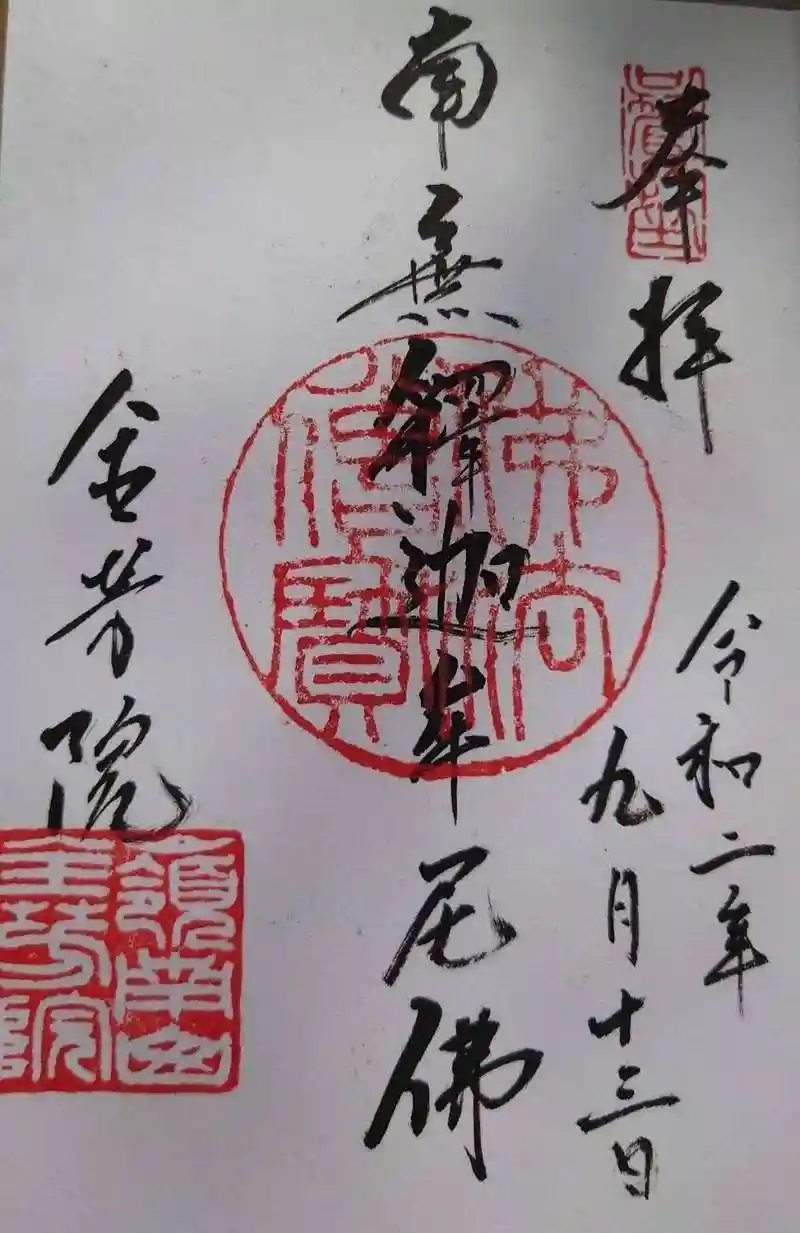 奉拝
令和二年
九月十三日
南無釋迦牟尼佛
金芳院
佛法僧寶